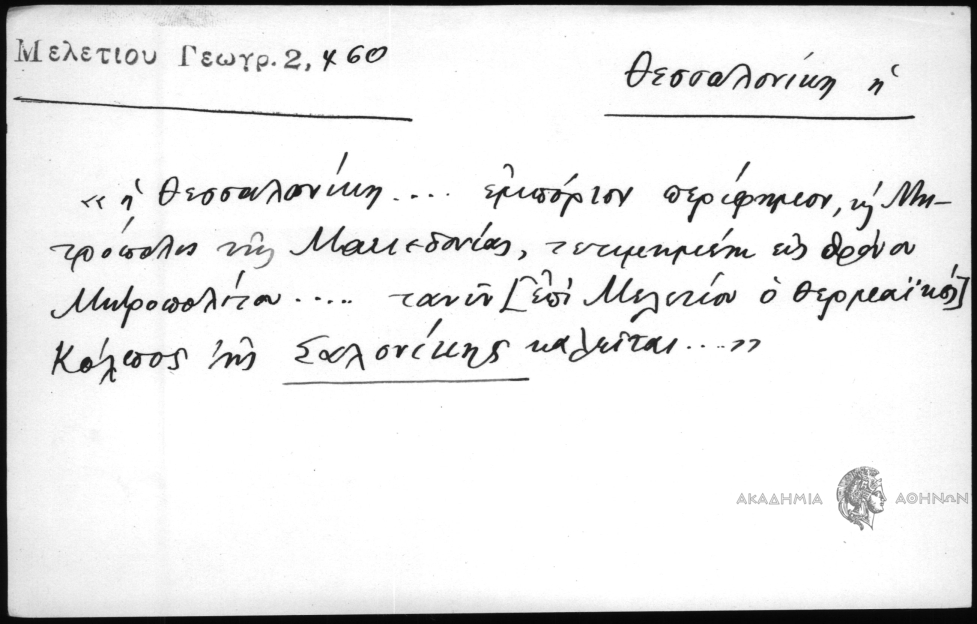 Μελετίου Γεωγρ. 2, 460
Θεσσαλονίκη ἡ
« ἡ Θεσσαλονίκη.... ἐμπόριον περίφημον, κ̀ Μη-
τρόπολις τῆς Μακεδονίας, τετιμημένη εἰς θρόνον
Μητροπολίτου..... τανῦν [ἐπὶ Μελετίου ὁ Θερμαϊκὸς]
Κόλπος τῆς Σαλονίκης καλεῖται....»
ΑΚΑΔΗΜΙΑ ΑΘΗΝΩΝ